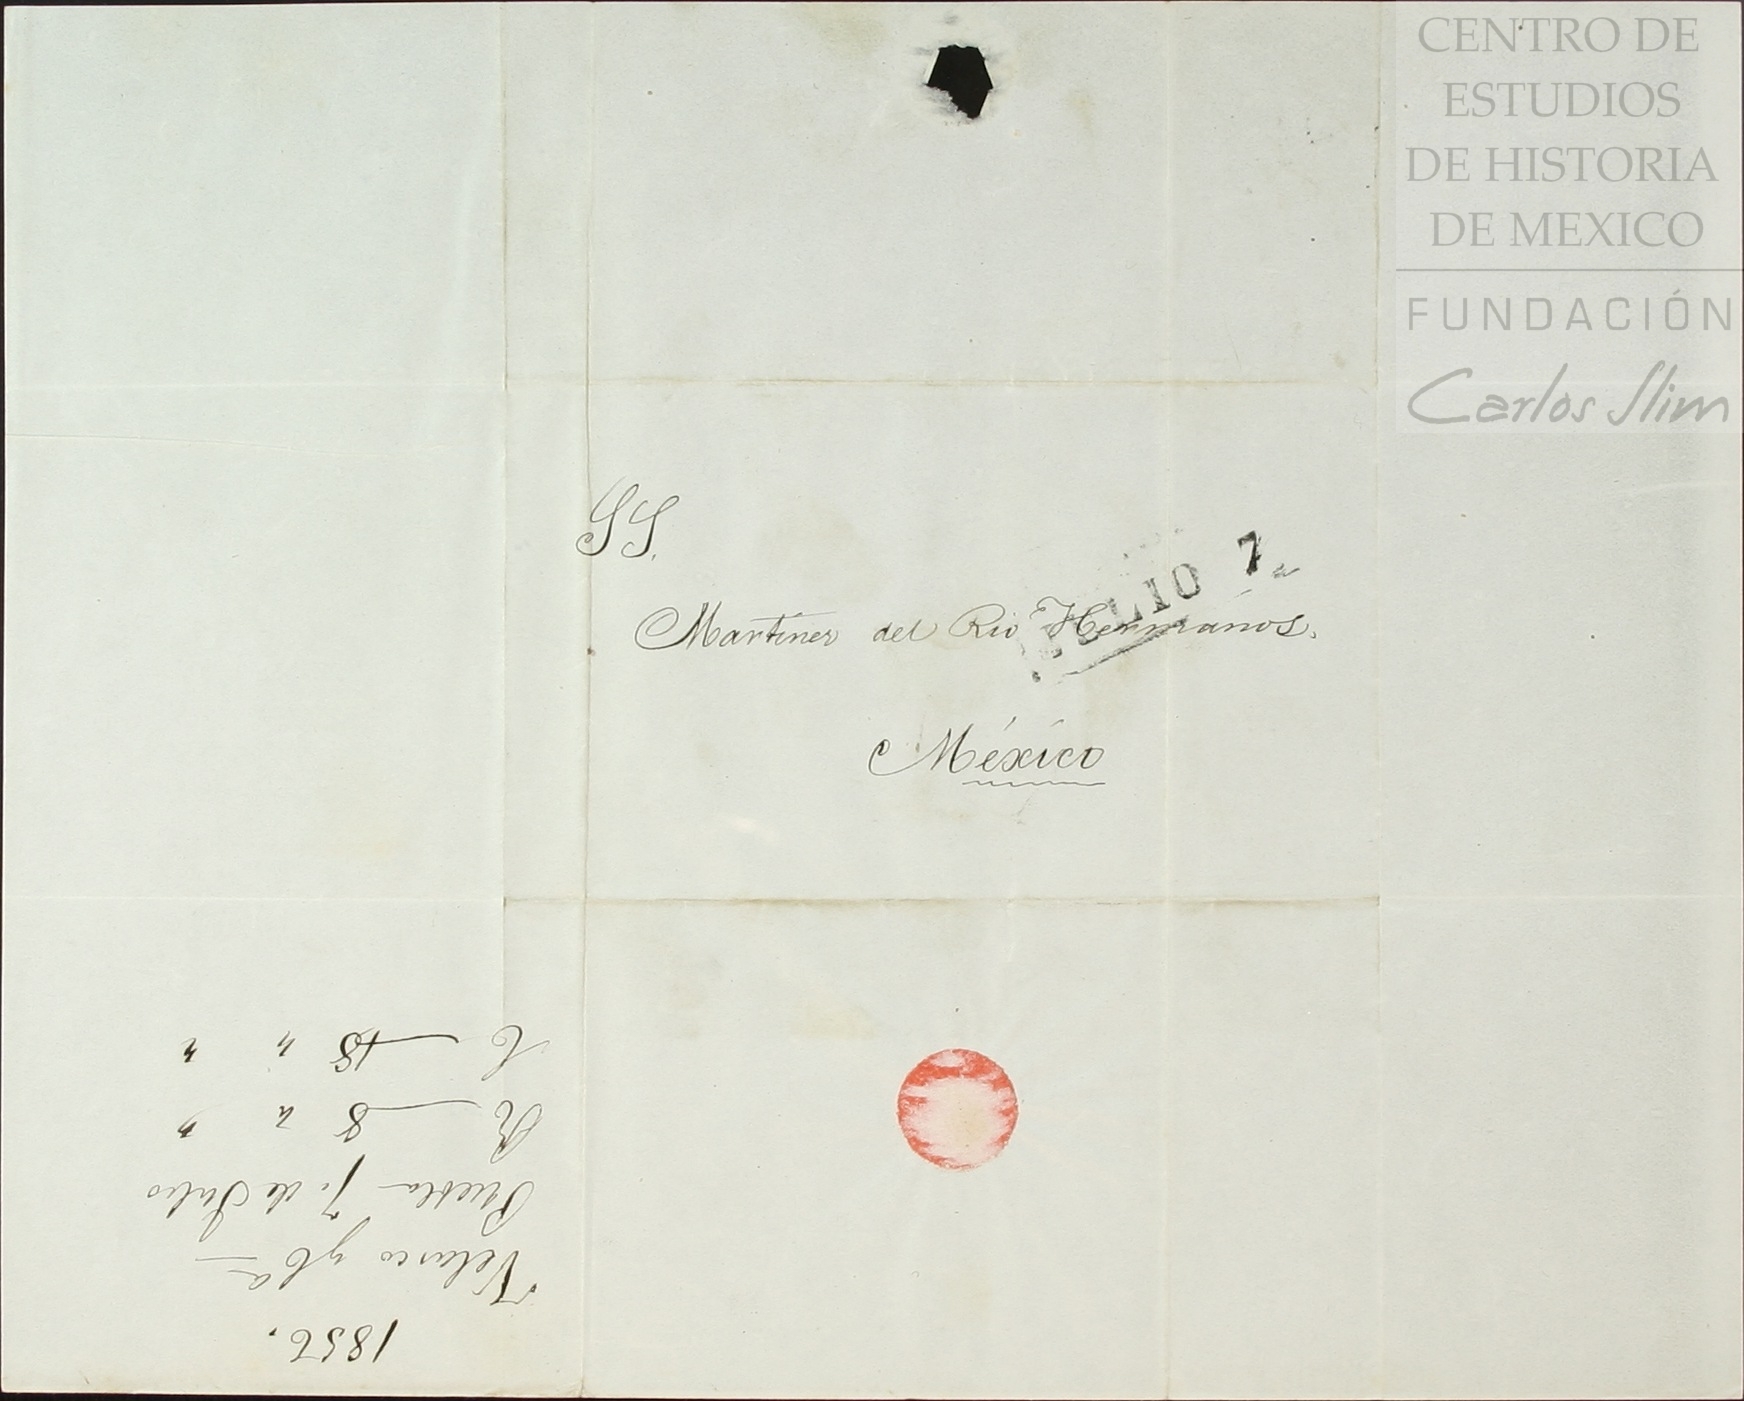 CENTRO DE
ESTUDIOS
DE HISTORIA
DE MEXICO
FUNDACIÓN
Carlos Slim
SS.
JULIO 7
Martinez del Rio Hermanos.
México
1856.
Velasco y Ca
Puebla 7. de Julio
R 8 " "
C 18 " "